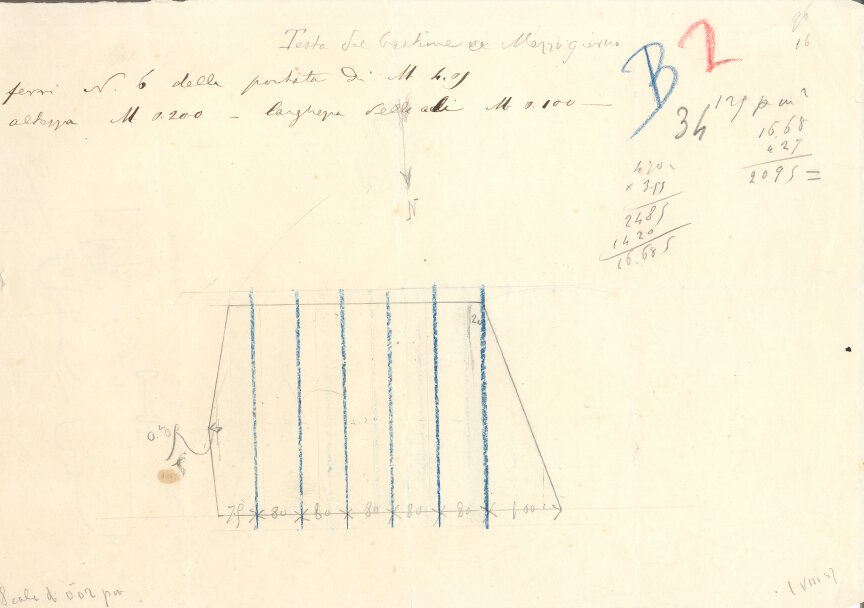 Testa del bastione a Mezzogiorno
ferri N. 6 della portata di M 4.05
altezza M 0.200 – larghezza delle ali M 0.100 —
B 2
16
34
16.68
427
2095 =
2485
1420
16.685
N
20
75 80 80 80 80 80 100
Scala di 0.02 per